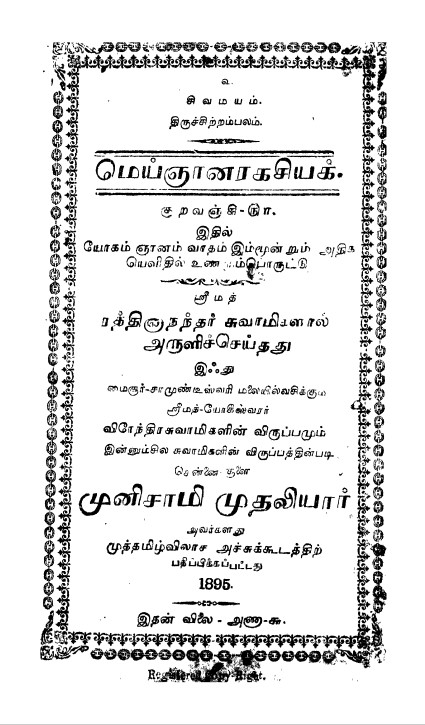 உ
சிவமயம்.
திருச்சிற்றம்பலம்.
மெய்ஞானரகசியக்.
குறவஞ்சி-௱.
இதில்
யோகம் ஞானம் வாதம் இம்மூன்றும் அதிக
யெளிதில்
ஸ்ரீமத்
சுவாமிகளால்
அருளிச்செய்தது
இஃது
மைசூர்-சாமுண்டீஸ்வரி மலையில்வசிக்கும்
ஸ்ரீமத்-யோகீஸ்வரர்
விரேந்திரசுவாமிகளின் விருப்பமும்
இன்னும்சில சுவாமிகளின் விருப்பத்தின்படி
சென்னை சூளை
முனிசாமி முதலியார்
அவர்களது
முத்தமிழ்விலாச அச்சுக்கூடத்திற்
பதிப்பிக்கப்பட்டது
1895.
இதன் விலை - அணா-சு.
Registered Copy-Right.